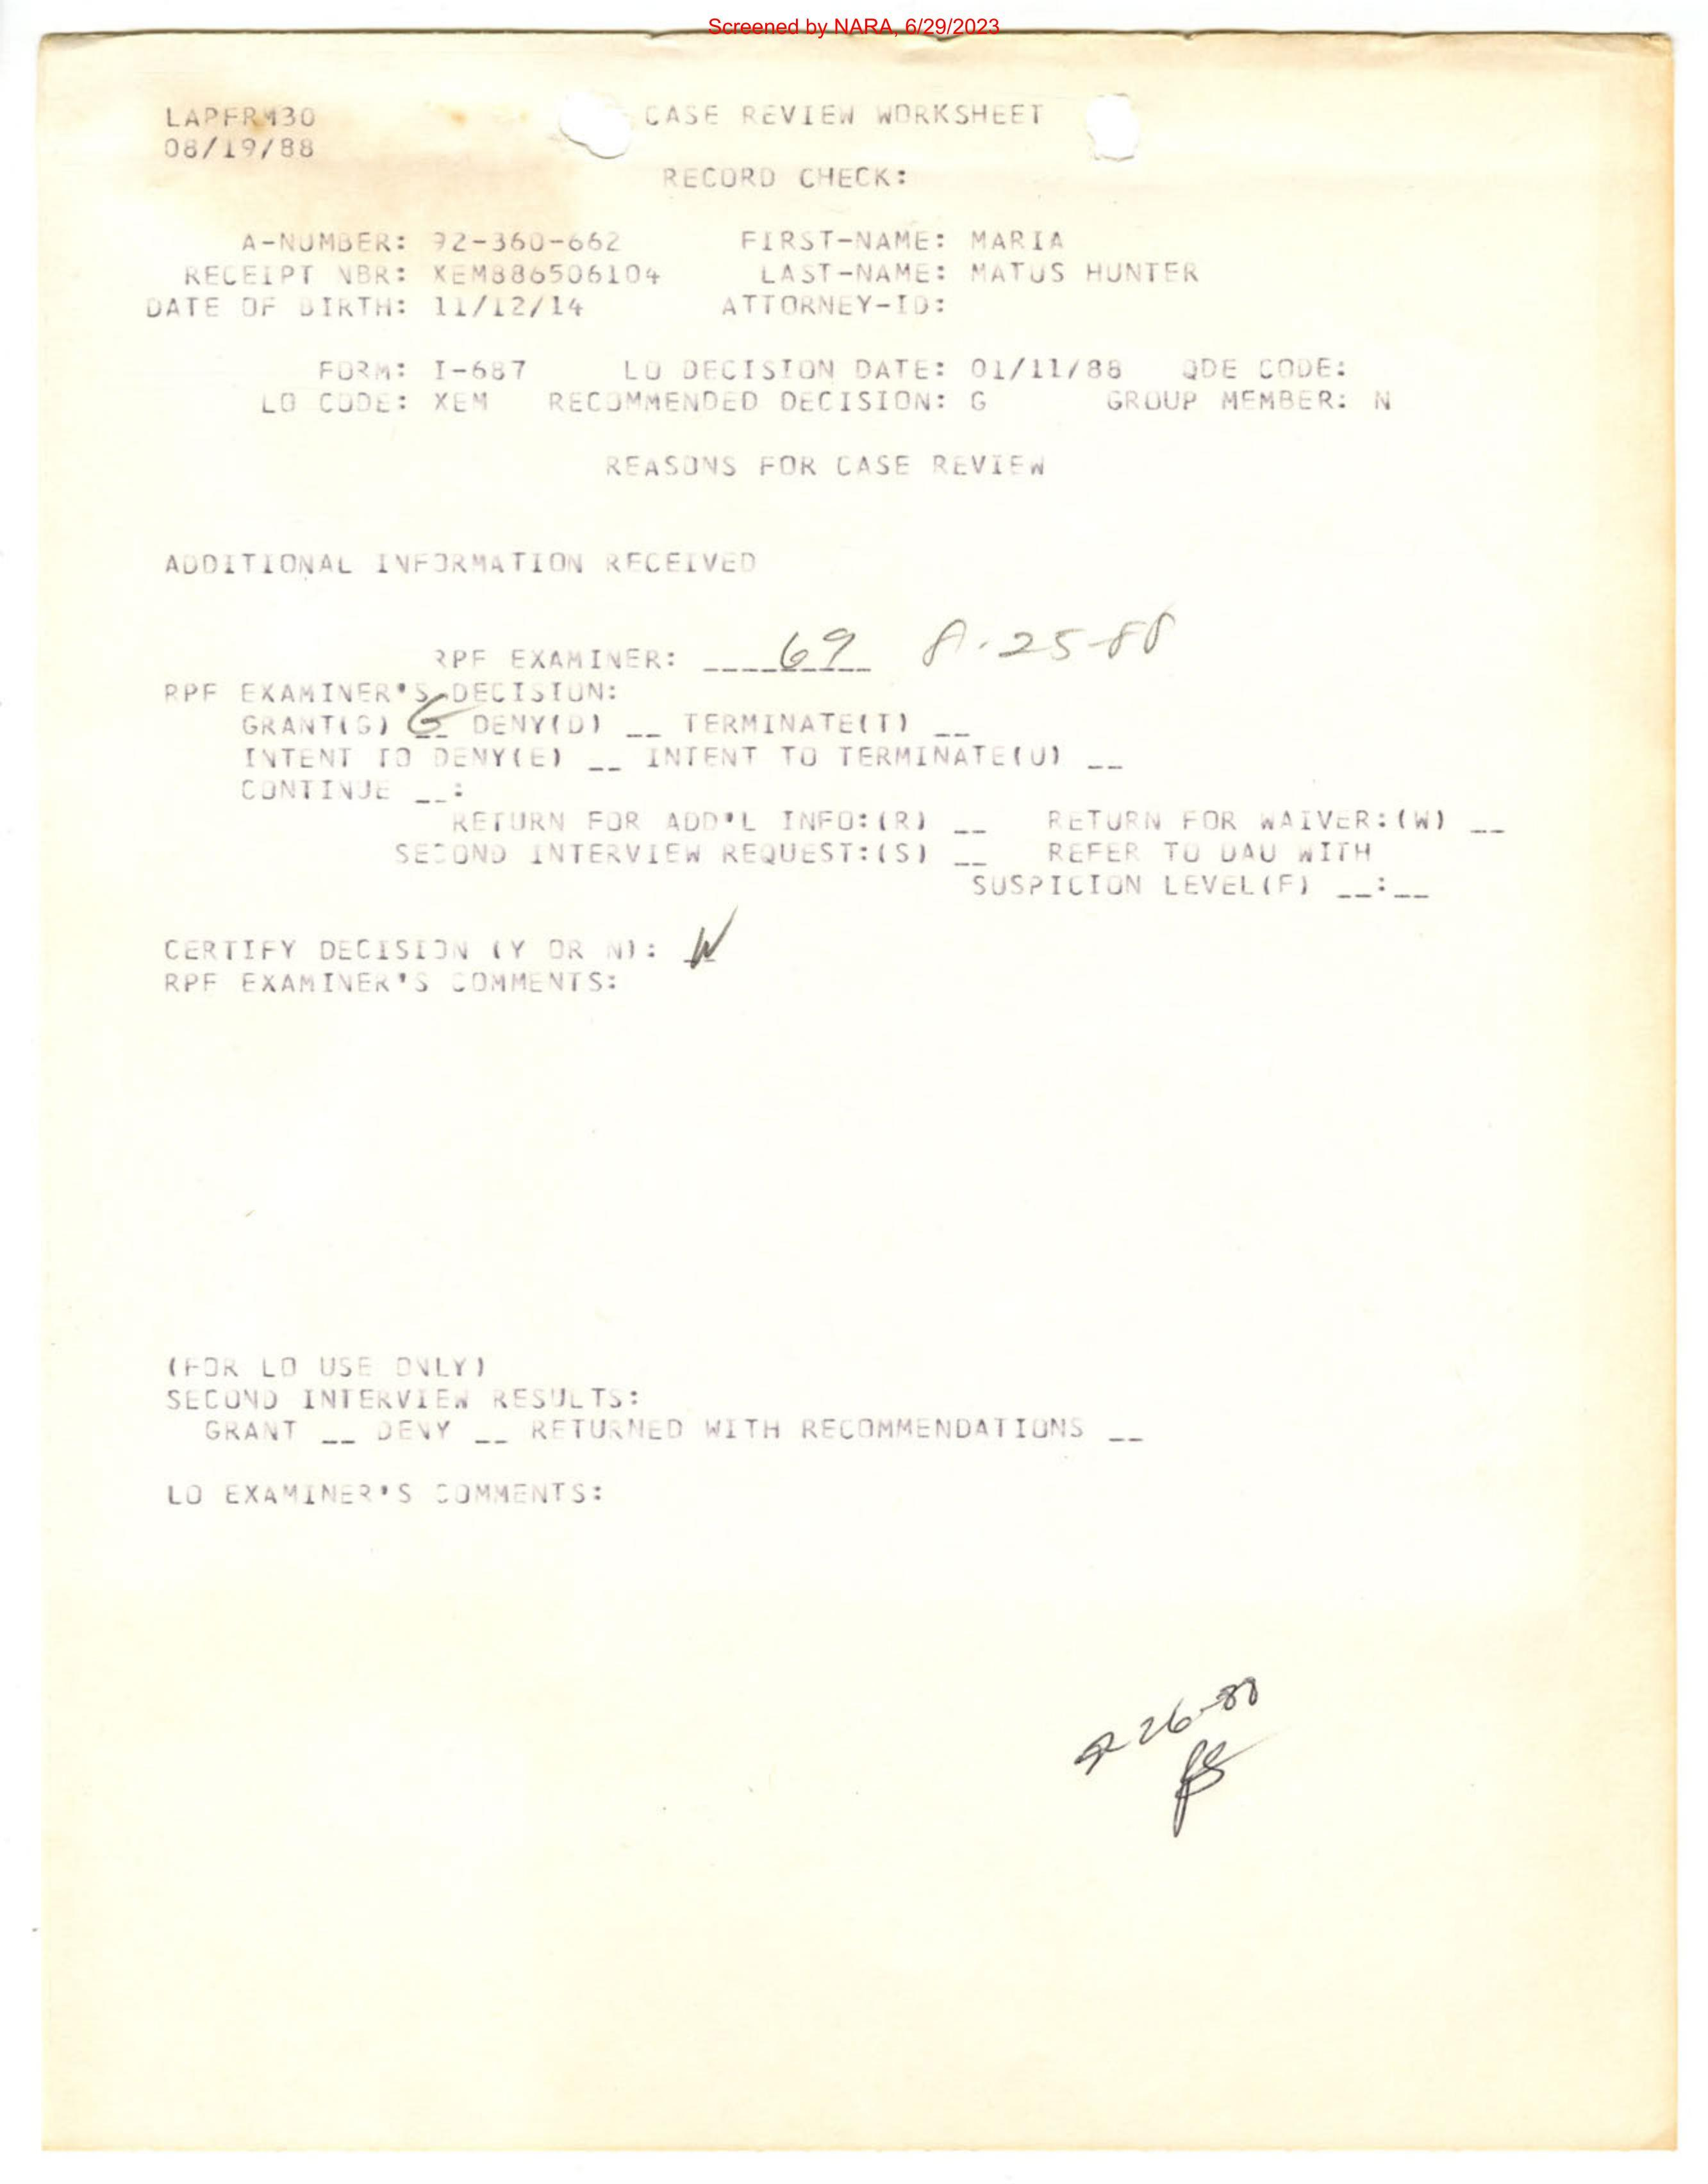 Screened by NARA, 6/29/2023
LAPFRM30 CASE REVIEW WORKSHEET
08/19/88
RECORD CHECK:
A-NUMBER: 92-360-662 FIRST-NAME: MARIA
RECEIPT NBR: XEM886506104 LAST-NAME: MATUS HUNTER
DATE OF BIRTH: 11/12/14 ATTORNEY-ID:
FORM: I-687 LO DECISION DATE: 01/11/88 QDE CODE:
LO CODE: XEM RECOMMENDED DECISION: G GROUP MEMBER: N
REASONS FOR CASE REVIEW
ADDITIONAL INFORMATION RECEIVED
RPF EXAMINER: 69 8-25-88
RPF EXAMINER'S DECISION:
GRANT(G) G DENY(D) __ TERMINATE(T) __
INTENT TO DENY(E) __ INTENT TO TERMINATE(U) __
CONTINUE __:
RETURN FOR ADD'L INFO:(R) __ RETURN FOR WAIVER:(W) __
SECOND INTERVIEW REQUEST:(S) __ REFER TO DAU WITH
SUSPICION LEVEL(F) __:__
CERTIFY DECISION (Y OR N): N
RPF EXAMINER'S COMMENTS:
(FOR LO USE ONLY)
SECOND INTERVIEW RESULTS:
GRANT __ DENY __ RETURNED WITH RECOMMENDATIONS __
LO EXAMINER'S COMMENTS:
26-88